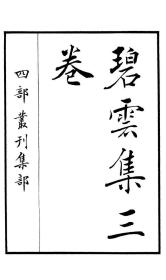 碧雲集三
卷
四部叢刊集部